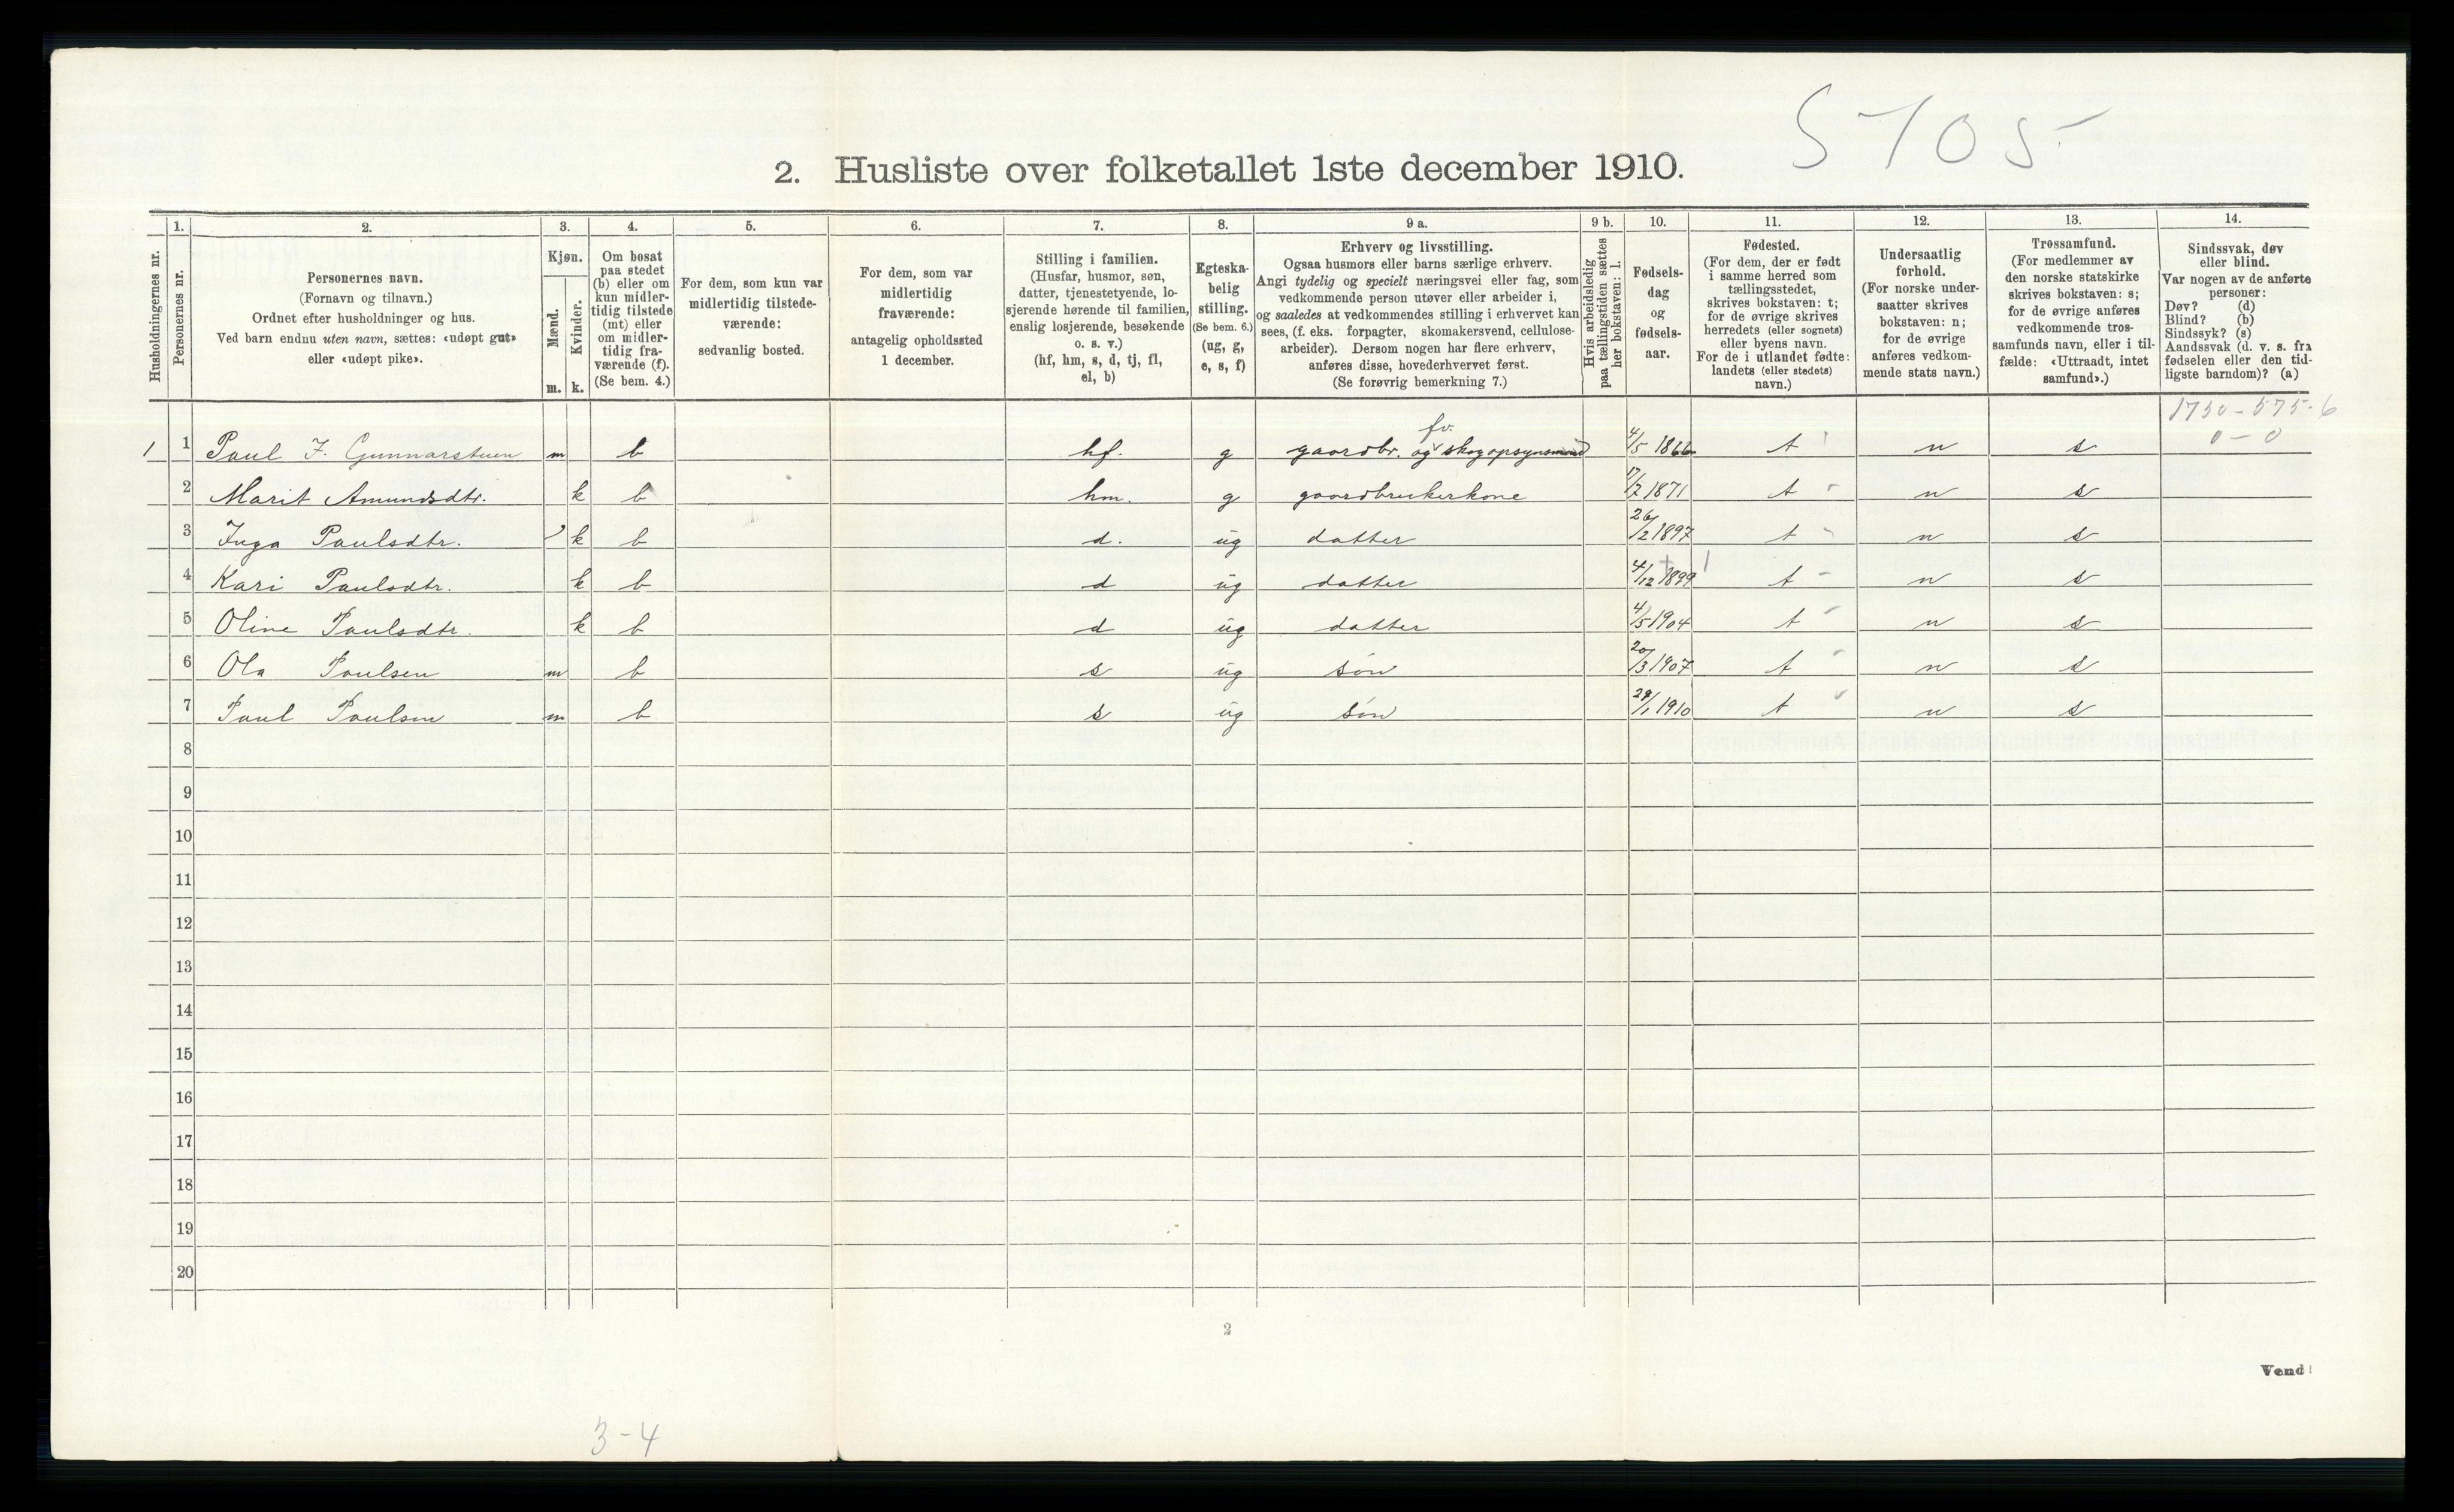 5705
2. Husliste over folketallet 1ste december 1910.
1. 2. 3. 4. 5. 6. 7. 8. 9 a. 9 b. 10. 11. 12. 13. 14.
Husholdningernes nr.
Personernes nr.
Personernes navn.
(Fornavn og tilnavn.)
Ordnet efter husholdninger og hus.
Ved barn endnu uten navn, sættes: «udøpt gut»
eller «udøpt pike».
Kjøn.
Mænd.
Kvinder.
m. k.
Om bosat
paa stedet
(b) eller om
kun midler-
tidig tilstede
(mt) eller
om midler-
tidig fra-
værende (f).
(Se bem. 4.)
For dem, som kun var
midlertidig tilstede-
værende:
sedvanlig bosted.
For dem, som var
midlertidig
fraværende:
antagelig opholdssted
1 december.
Stilling i familien.
(Husfar, husmor, søn,
datter, tjenestetyende, lo-
sjerende hørende til familien,
enslig losjerende, besøkende
o. s. v.)
(hf, hm, s, d, tj, fl,
el, b)
Egteska-
belig
stilling.
(Se bem. 6.)
(ug, g,
e, s, f)
Erhverv og livsstilling.
Ogsaa husmors eller barns særlige erhverv.
Angi tydelig og specielt næringsvei eller fag, som
vedkommende person utøver eller arbeider i,
og saaledes at vedkommendes stilling i erhvervet kan
sees, (f. eks. forpagter, skomakersvend, cellulose-
arbeider). Dersom nogen har flere erhverv,
anføres disse, hovederhvervet først.
(Se forøvrig bemerkning 7.)
Hvis arbeidsledig
paa tællingstiden sættes
her bokstaven: l.
Fødsels-
dag
og
fødsels-
aar.
Fødested.
(For dem, der er født
i samme herred som
tællingsstedet,
skrives bokstaven: t;
for de øvrige skrives
herredets (eller sognets)
eller byens navn.
For de i utlandet fødte:
landets (eller stedets)
navn.)
Undersaatlig
forhold.
(For norske under-
saatter skrives
bokstaven: n;
for de øvrige
anføres vedkom-
mende stats navn.)
Trossamfund.
(For medlemmer av
den norske statskirke
skrives bokstaven: s;
for de øvrige anføres
vedkommende tros-
samfunds navn, eller i til-
fælde: «Uttraadt, intet
samfund».)
Sindssvak, døv
eller blind.
Var nogen av de anførte
personer:
Døv? (d)
Blind? (b)
Sindssyk? (s)
Aandssvak (d. v. s. fra
fødselen eller den tid-
ligste barndom)? (a)
1730-575-6
0-0
fv.
1 1 Paul J. Gunnarstuen m b hf. g gaardbr. og skogopsynsmand 4/5 1866 t n s
2 Marit Amundsdtr. k b hm. g gaardbrukerkone 17/7 1871 t n s
3 Inga Paulsdtr. k b d. ug datter 26/2 1897 t n s
4 Kari Paulsdtr. k b d ug datter 4/12 1899 t n s
5 Oline Paulsdtr. k b d ug datter 4/5 1904 t n s
6 Ola Paulsen m b s ug søn 20/3 1907 t n s
7 Paul Paulsen m b s ug søn 29/1 1910 t n s
8
9
10
11
12
13
14
15
16
17
18
19
20
2
Vend!
3-4